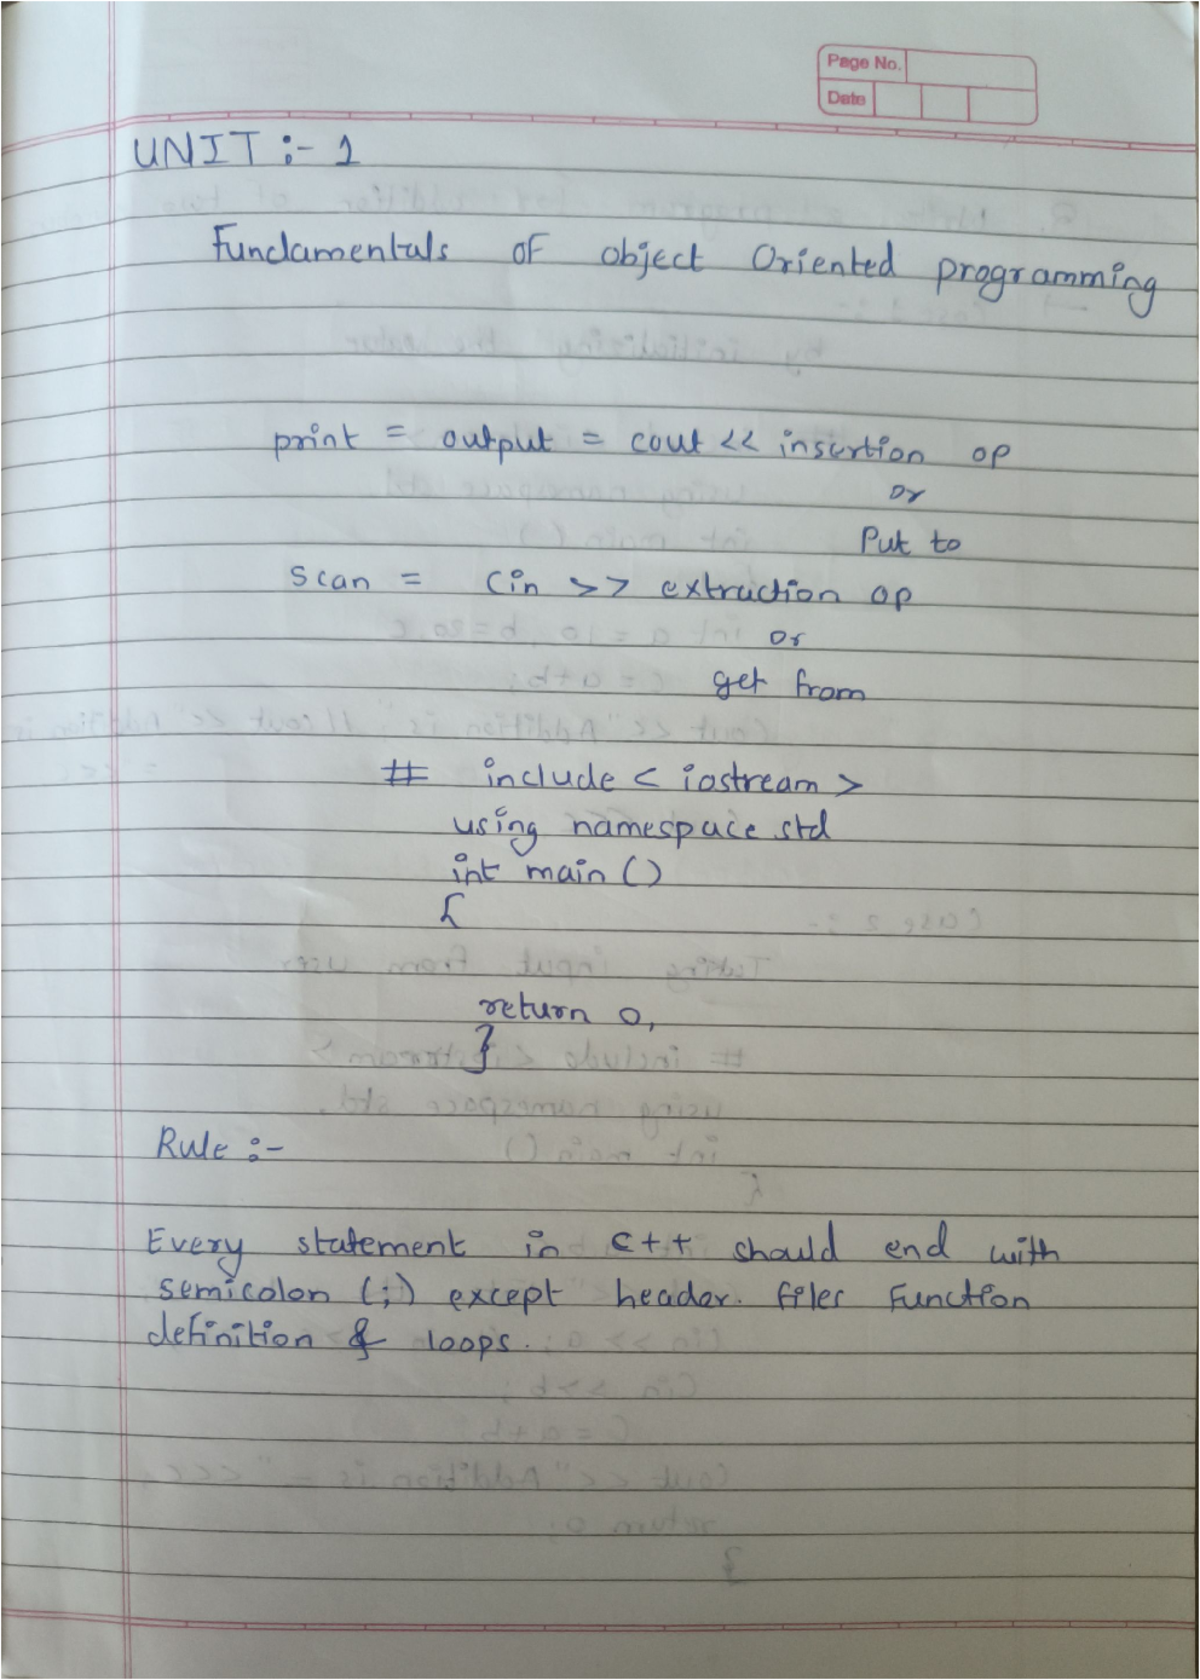 Page No.
Date
UNIT :- 1
Fundamentals of object Oriented programming
print = output = cout << insertion op
or
Put to
scan = Cin >> extraction op
or
get from
# include < iostream >
using namespace std
int main ()
{
return 0,
}
Rule :-
Every statement in C++ should end with
semicolon (;) except header. files Function
definition & loops.